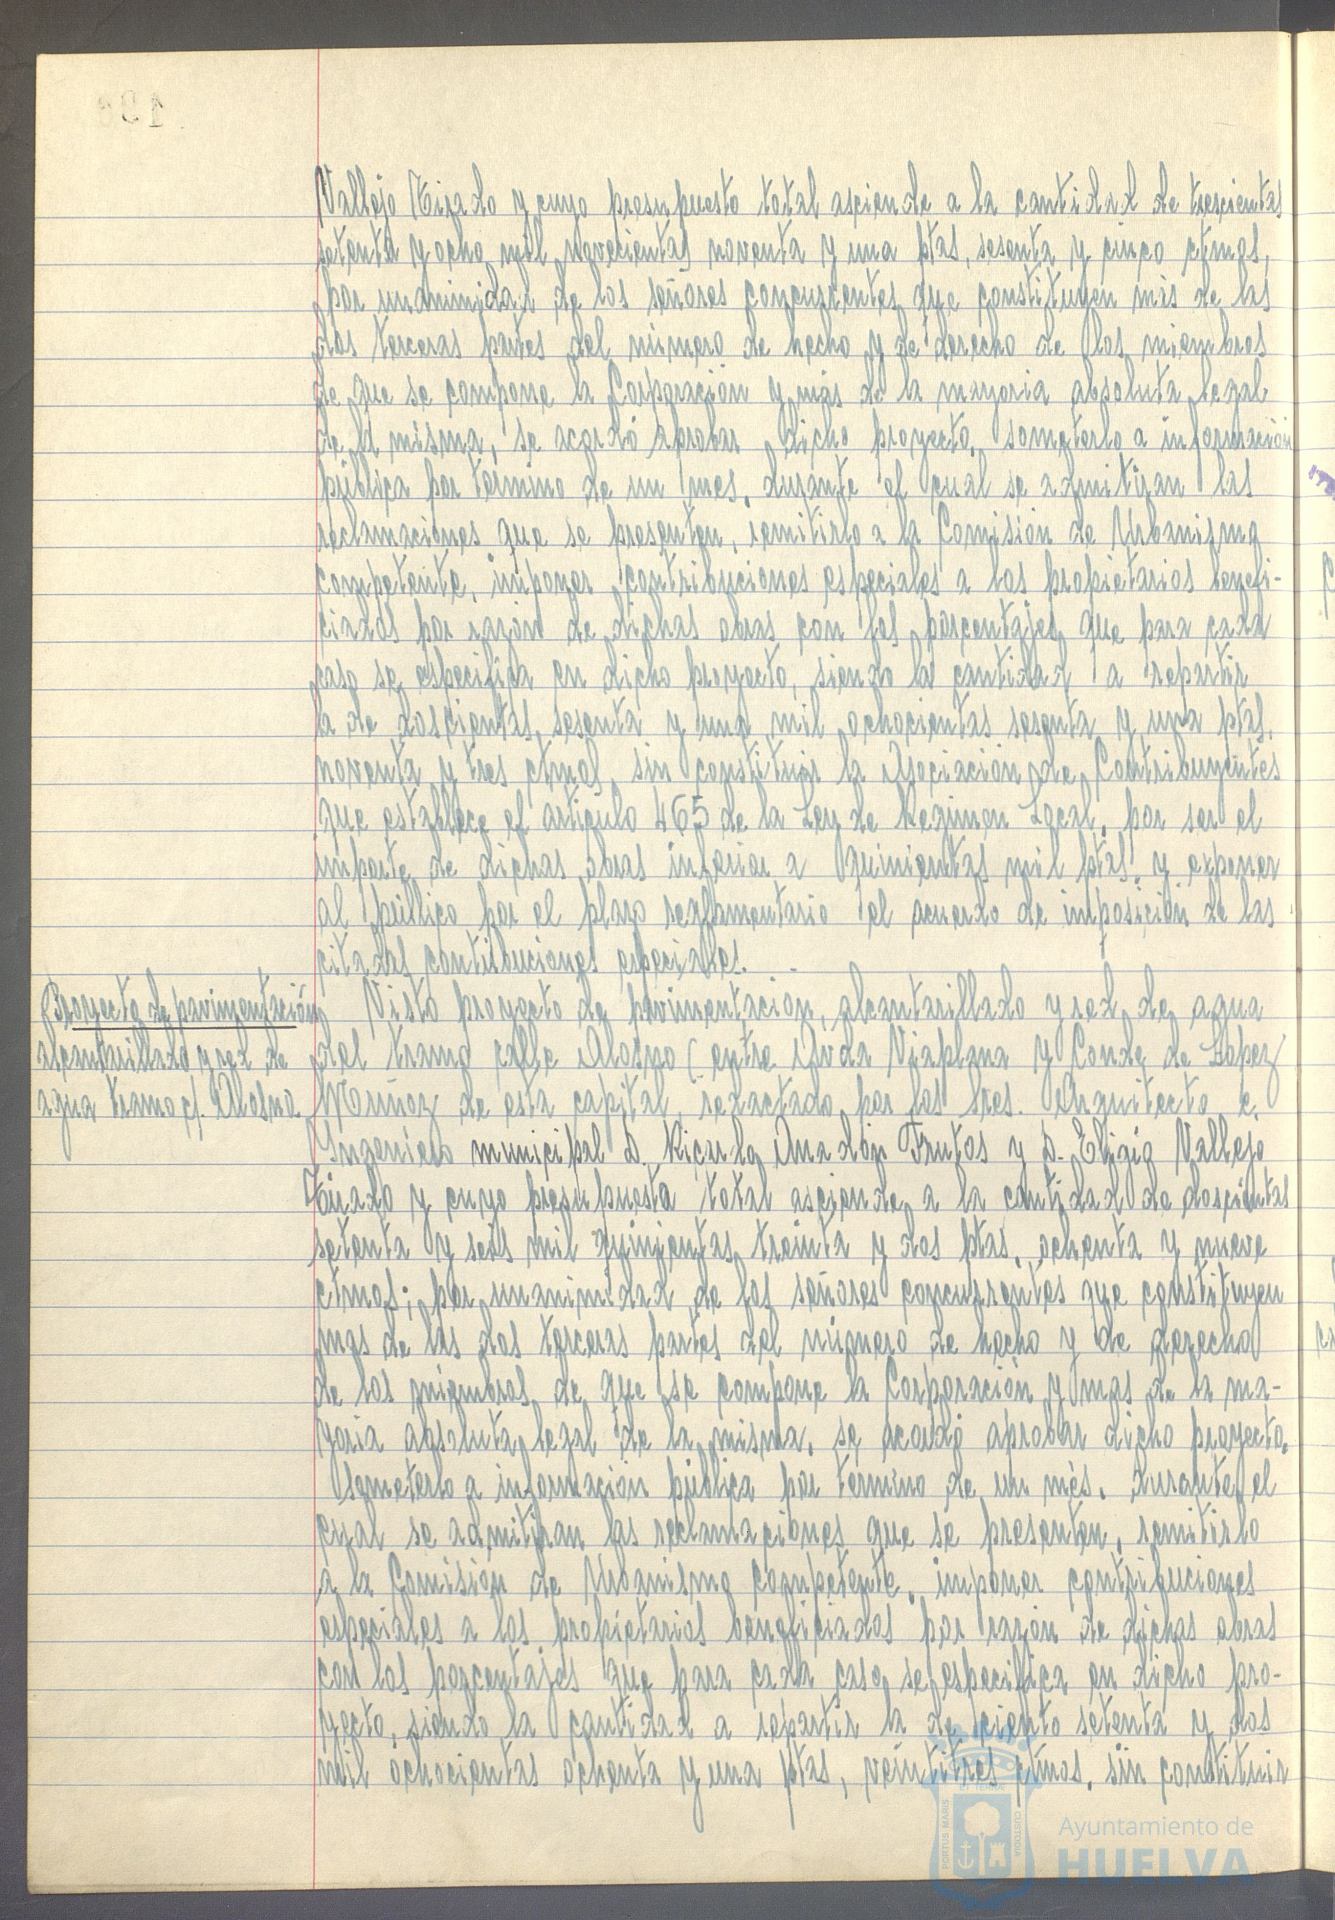 Vallejo Tirado y cuyo presupuesto total asciende a la cantidad de trescientas
setenta y ocho mil novecientas noventa y una ptas, sesenta y cinco ctmos,
por unanimidad de los señores concurrentes que constituyen más de las
dos terceras partes del número de hecho y de derecho de los miembros
de que se compone la Corporación y más de la mayoria absoluta legal
de la misma, se acordó aprobar dicho proyecto, someterlo a información
pública por término de un mes, durante el cual se admitiran las
reclamaciones que se presenten, remitirlo a la Comisión de Urbanismo
competente, imponer contribuciones especiales a los propietarios benefi-
ciados por razón de dichas obras con los porcentajes que para cada
caso se especifica en dicho proyecto, siendo la cantidad a repartir
la de doscientas sesenta y una mil ochocientas sesenta y una ptas,
noventa y tres ctmos, sin constituir la Asociación de Contribuyentes
que establece el artículo 465 de la Ley de Regimen Local, por ser el
importe de dichas obras inferior a quinientas mil ptas, y exponer
al público por el plazo reglamentario el acuerdo de imposición de las
citadas contribuciones especiales.
Proyecto de pavimentación
alcantarillado y red de
agua tramo c/. Alosno
Visto proyecto de pavimentación, alcantarillado y red de agua
del tramo calle Alosno (entre Avda Viaplana y Conde de López
Muñoz de esta capital, redactado por los Sres. Arquitecto e
Ingeniero municipal D. Ricardo Anadón Frutos y D. Eligio Vallejo
Tirado y cuyo presupuesto total asciende a la cantidad de doscientas
setenta y seis mil quinientas treinta y dos ptas, ochenta y nueve
ctmos; por unanimidad de los señores concurrentes que constituyen
mas de las dos terceras partes del número de hecho y de derecho
de los miembros de que se compone la Corporación y mas de la ma-
yoria absoluta legal de la misma, se acordó aprobar dicho proyecto,
someterlo a información pública por término de un mes, durante el
cual se admitiran las reclamaciones que se presenten, remitirlo
a la Comisión de Urbanismo competente, imponer contribuciones
especiales a los propietarios beneficiados por razón de dichas obras
con los porcentajes que para cada caso se especifica en dicho pro-
yecto, siendo la cantidad a repartir la de ciento setenta y dos
mil ochocientas ochenta y una ptas, veintitres ctmos, sin constituir
PORTUS MARIS ET TERRAE CUSTODIA
Ayuntamiento de
HUELVA